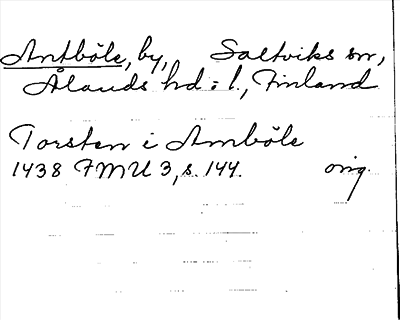 Antböle, by, Saltviks sn,
Ålands hd o l., Finland
Torsten i Amböle
1438 FMU 3, s. 144. orig.